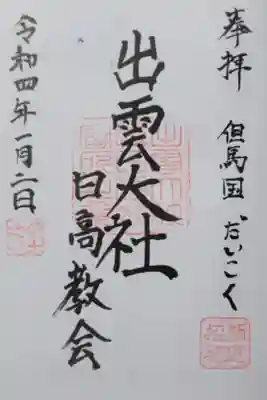 奉拝 但馬国 だいこく
出雲大社
日高教会
令和四年一月二日